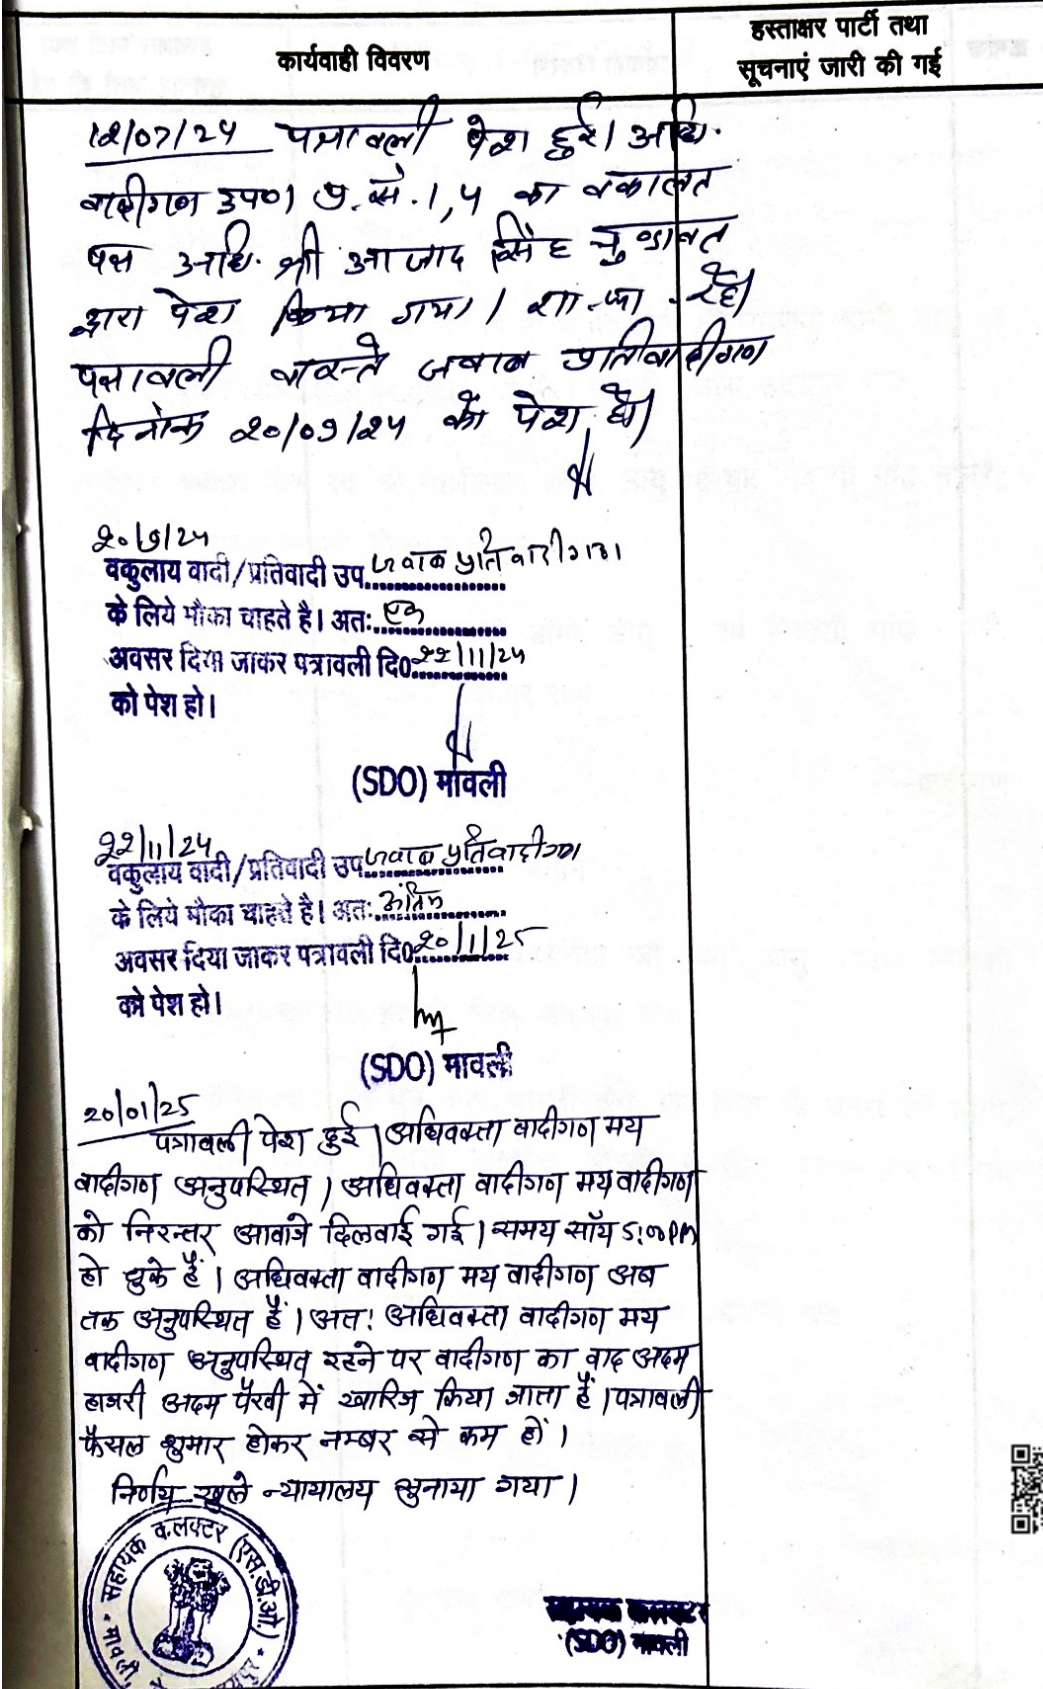 कार्यवाही विवरण
हस्ताक्षर पार्टी तथा
सूचनाएं जारी की गई
12/07/24 पत्रावली पेश हुई। अधि.
वादीगण उप०। प्र.सं. 1, 4 का वकालत
पत्र अधि. श्री आजाद सिंह चुण्डावत
द्वारा पेश किया गया। शा.प्र. रहे।
पत्रावली वास्ते जवाब प्रतिवादीगण
दिनांक 20/09/24 को पेश हो।
20/9/24
वकुलाय वादी/प्रतिवादी उप जवाब प्रतिवादीगण
के लिये मौका चाहते है। अतः एक
अवसर दिया जाकर पत्रावली दि० 22/11/24
को पेश हो।
(SDO) मावली
22/11/24
वकुलाय वादी/प्रतिवादी उप जवाब प्रतिवादीगण
के लिये मौका चाहते है। अतः अंतिम
अवसर दिया जाकर पत्रावली दि० 20/1/25
को पेश हो।
(SDO) मावली
20/01/25
पत्रावली पेश हुई। अधिवक्ता वादीगण मय
वादीगण अनुपस्थित। अधिवक्ता वादीगण मय वादीगण
को निरन्तर आवाजे दिलवाई गई। समय सॉय 5:00 PM
हो चुके हैं। अधिवक्ता वादीगण मय वादीगण अब
तक अनुपस्थित हैं। अतः अधिवक्ता वादीगण मय
वादीगण अनुपस्थित रहने पर वादीगण का वाद अदम
हाजरी अदम पैरवी में खारिज किया जाता हैं। पत्रावली
फैसल शुमार होकर नम्बर से कम हों।
निर्णय खुले न्यायालय सुनाया गया।
सहायक कलक्टर (एस.डी.ओ.)
मावली
सहायक कलक्टर
(SDO) मावली